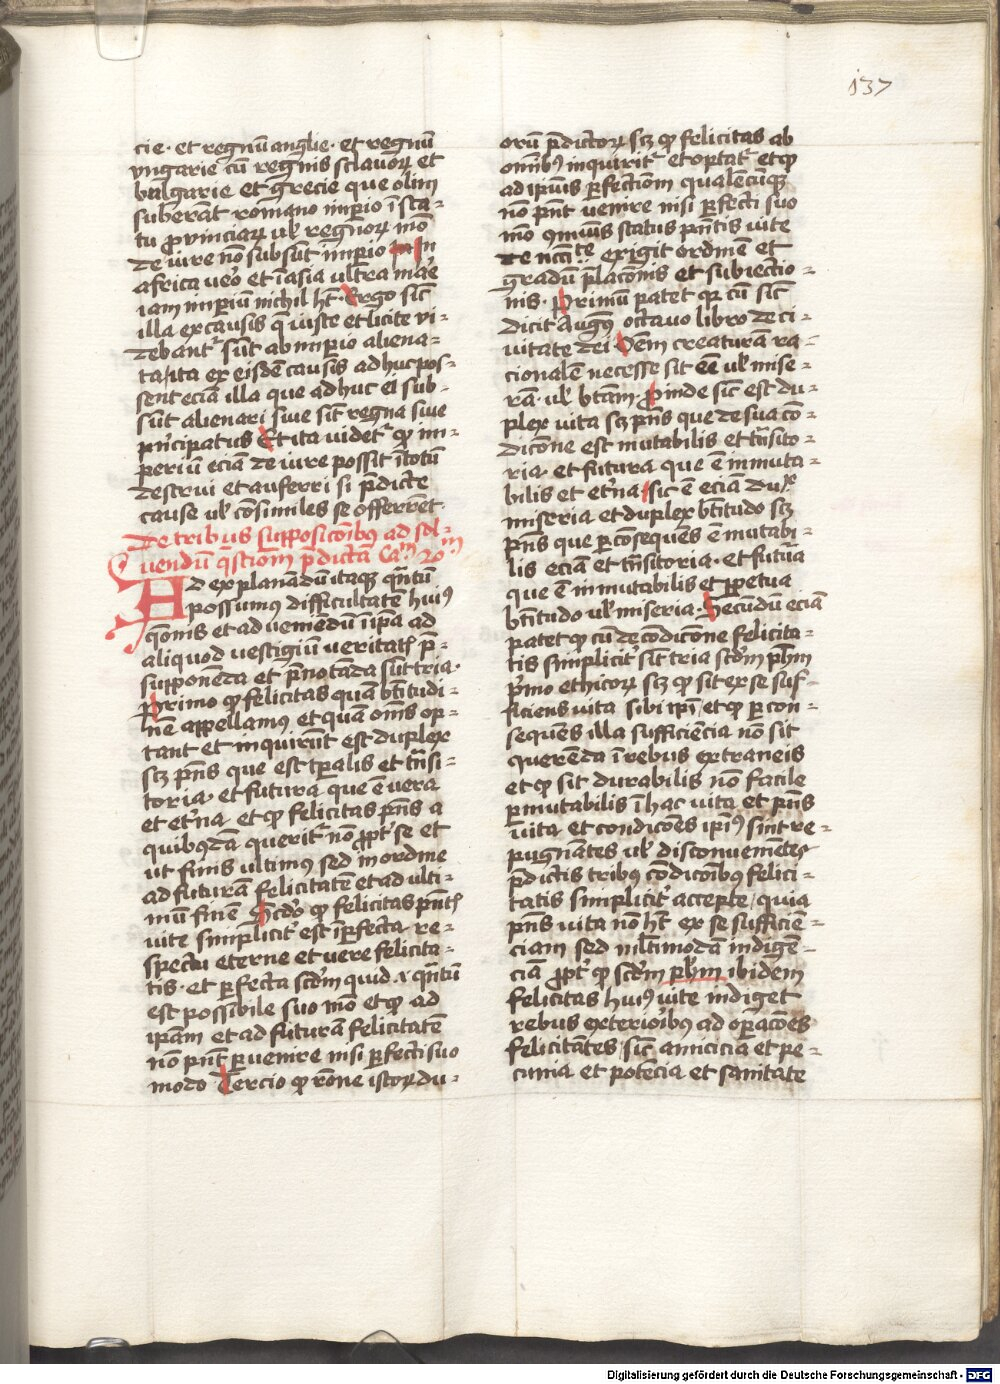 137
cie· et regnū anglie· et regnū
vngarie cū regnis sclauoꝝ et
bulgarie et grecie que olim
suberāt romano impio ī sta-
tu ꝓvinciaꝝ ul̕ regnoꝝ mō
de iure nō subsūt impio In
africa ueo et ī asia ultra mae
iam impiū nichil ht̄· Ergo sic̄
illa ex causis q̄ iuste et licite vi-
debant̄ sūt ab impio aliena-
ta ita ex eisdē causis adhuc pos-
sent eciā illa que adhuc ei sub-
sūt alienari siue sīt regna siue
pncipatus Et ita videt̄ ꝙ im-
periū eciā de iure possit ī totū
destrui et auferri si pdicte
cause ul̕ cōsimiles se offerret·
De tribus supposicōibꝰ ad sol-
uendū q̄stiōm pdictā Caᵐ 20ᵐ
Ad explanādū itaqꝫ qn̄tū
possumꝰ difficultatē huiꝰ
q̄onis et ad ueniēdū ī ipā ad
aliquod vestigiū veritatꝭ p̄-
supponēda et p̄notāda sūt tria·
Primo ꝙ felicitas quā btītudi-
nē appellamꝰ et quā om̄s op-
tant et inquirūt est duplex
scꝫ pn̄s que est tꝑalis et tn̄si-
toria· et futura que ē vera
et etna et ꝙ felicitas pn̄s a
quibꝰdā querit̄ nō ꝓpt̕ se et
ut finis ultimus sed in ordine
ad futurā felicitatē et ad ulti-
mū finē Scdo ꝙ felicitas pn̄tꝭ
uite simplicit̕ est īpfecta re-
spectu eterne et vere felicita-
tis· et pfecta scdm quid ⁊ qn̄tū
est possibile suo mō et ꝙ ad
ipam et ad futurā felicitatē
nō pn̄t ꝑuenire nisi pfecti suo
modo Tercio ꝙ rōne istoꝝ du-
orū pdictoꝝ scꝫ ꝙ felicitas ab
omībꝰ inquirit̄ et optat̄ et ꝙ
ad ipiꝰ pfectiōm qualēcūqꝫ
nō pn̄t uenire nisi pfecti suo
mō status pn̄tis uite
de exigit ordinē et
gradū placōnis et subiectio-
nis· Primū patet qꝛ cū sic̄
dicit Augꝰ octauo libro de ci-
uitate dei Oēm creaturā ra-
cionalē necesse sit eē ul̕ mise-
rā· ul̕ btām· Proinde sic̄ est du-
plex vita scꝫ pn̄s que de sua cō-
dicōne est mutabilis et tn̄sito-
ria· et futura que ē inmuta-
bilis et etna sic ē eciā dux
miseria et duplex btītudo scꝫ
pn̄s que ꝑ cōseqūes ē mutabi-
lis eciā et tn̄sitoria· et futūa
que ē inmutabilis et ꝑpetua
btītudo ul̕ miseria· Secūdū eciā
patet ꝙ cū de cōdicōne felicita-
tis simplicit̕ sīt tria scdm phm
pmo ethicoꝝ scꝫ ꝙ sit ex se suf-
ficiens uita sibi ipi et ꝙ ꝑ con-
sequēs illa sufficiēcia nō sit
querēda ī rebus extraneis
et ꝙ sit durabilis nō facile
ꝑmutabilis ī hac uita et pn̄s
uita et condicōes ipiꝰ sint re-
pugnātes ul̕ discōuenietes
pdictis tribus cōdicōibꝰ felici-
tatis simplicit̕ accepte quia
pn̄s uita nō ht̄ ex se sufficiē-
ciam sed mltimodā indigē-
ciā ꝓpt̕ ꝙ scdm phm ibidem
felicitas huiꝰ uite indiget
rebus exterioibꝰ ad opacōes
felicitātes sic̄ amicicia et pe-
cunia et potēcia et sanitate
Digitalisierung gefördert durch die Deutsche Forschungsgemeinschaft - DFG